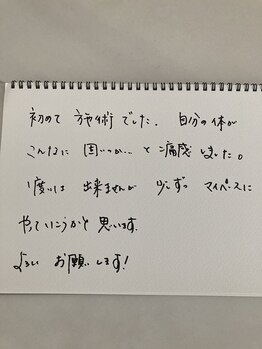 初めて 施術でした. 自分の体が
こんなに 固いのか… と 痛感しました。
1度には 出来ませんが 少しずつ マイペースに
やっていこうかと 思います.
よろしく お願いします!